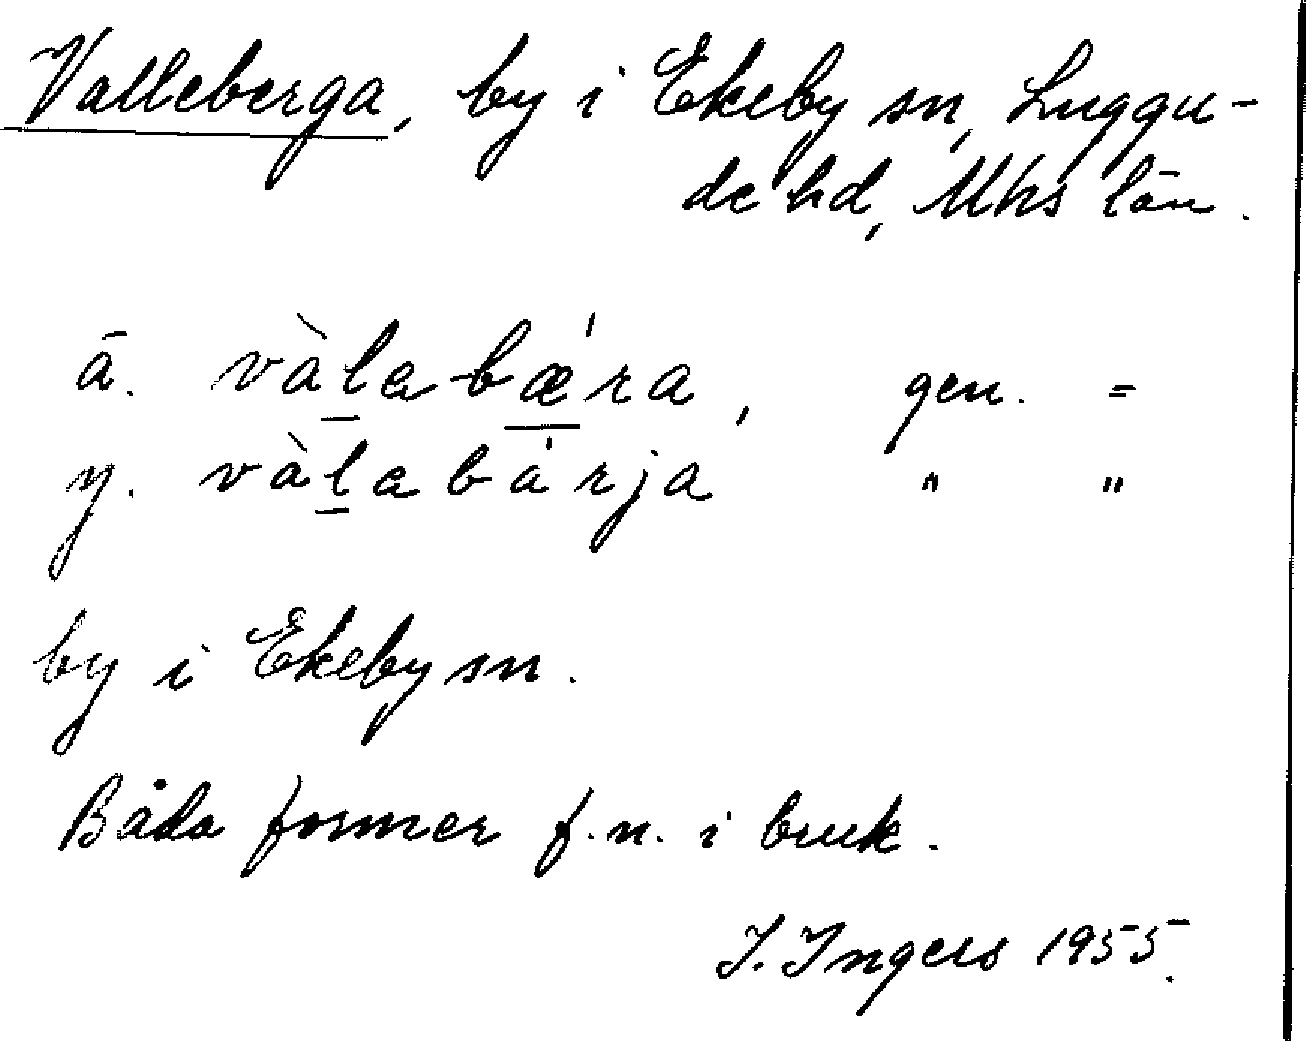 Valleberga, by i Ekeby sn, Luggu-
de hd, Mhs län.
ä. vàlabǽra, gen. =
y. vàlabárja " "
by i Ekeby sn.
Båda former f.n. i bruk.
I. Ingers 1955.